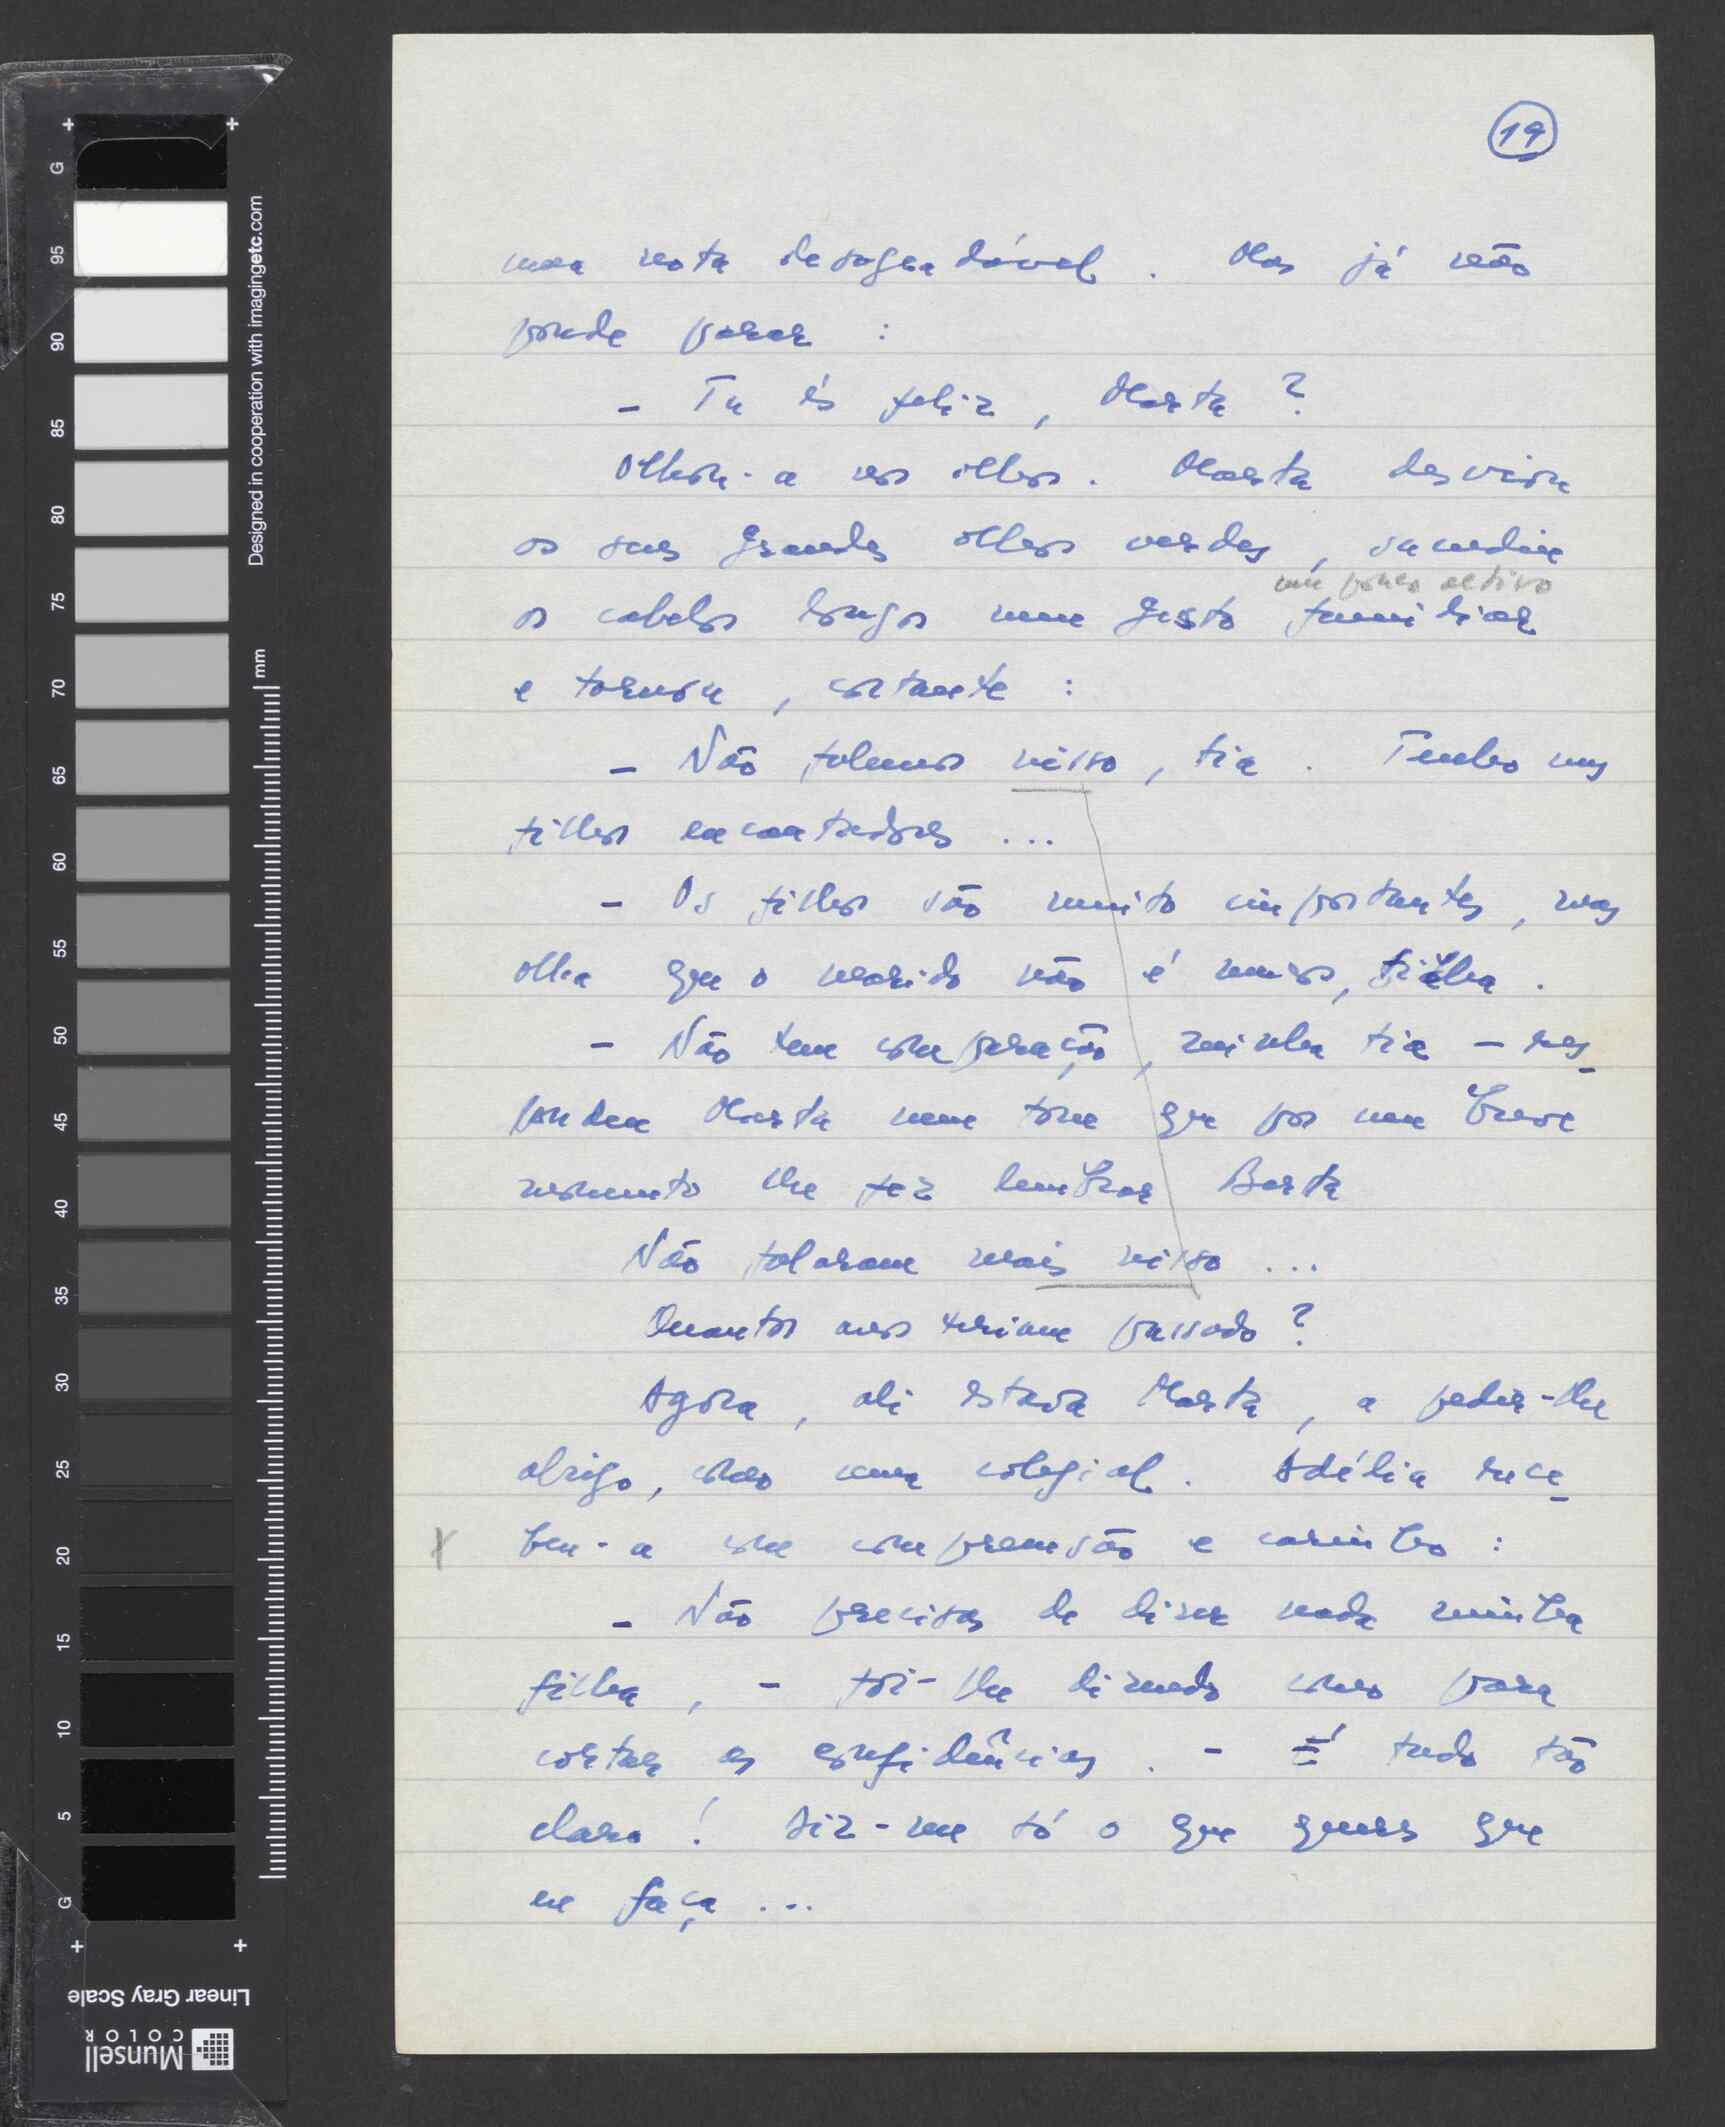 19
uma nota desagradável. Mas já não
poude parar:
– Tu és feliz, Marta?
Olhou-a nos olhos. Marta desviou
os seus grandes olhos verdes, sacudiu
um pouco altivo
os cabelos longos num gesto familiar
e tornou, cortante:
– Não falemos nisso, tia. Tenho uns
filhos encantadores ...
– Os filhos são muito importantes, mas
olha que o marido não é menos, filha.
– Não tem comparação, minha tia – res-
pondeu Marta num tom que por um breve
momento lhe fez lembrar Berta
Não falaram mais nisso ...
Quantos anos teriam passado?
Agora, ali estava Marta, a pedir-lhe
abrigo, como uma colegial. Adélia rece-
beu-a com compreensão e carinho:
– Não precisas de dizer nada minha
filha, – foi-lhe dizendo como para
cortar as confidências. – É tudo tão
claro! Diz-me só o que queres que
eu faça ...
G
95
90
85
80
75
70
65
60
55
50
45
40
35
30
25
20
15
10
5
G
mm
Designed in cooperation with imagingetc.com
Linear Gray Scale
Munsell
COLOR